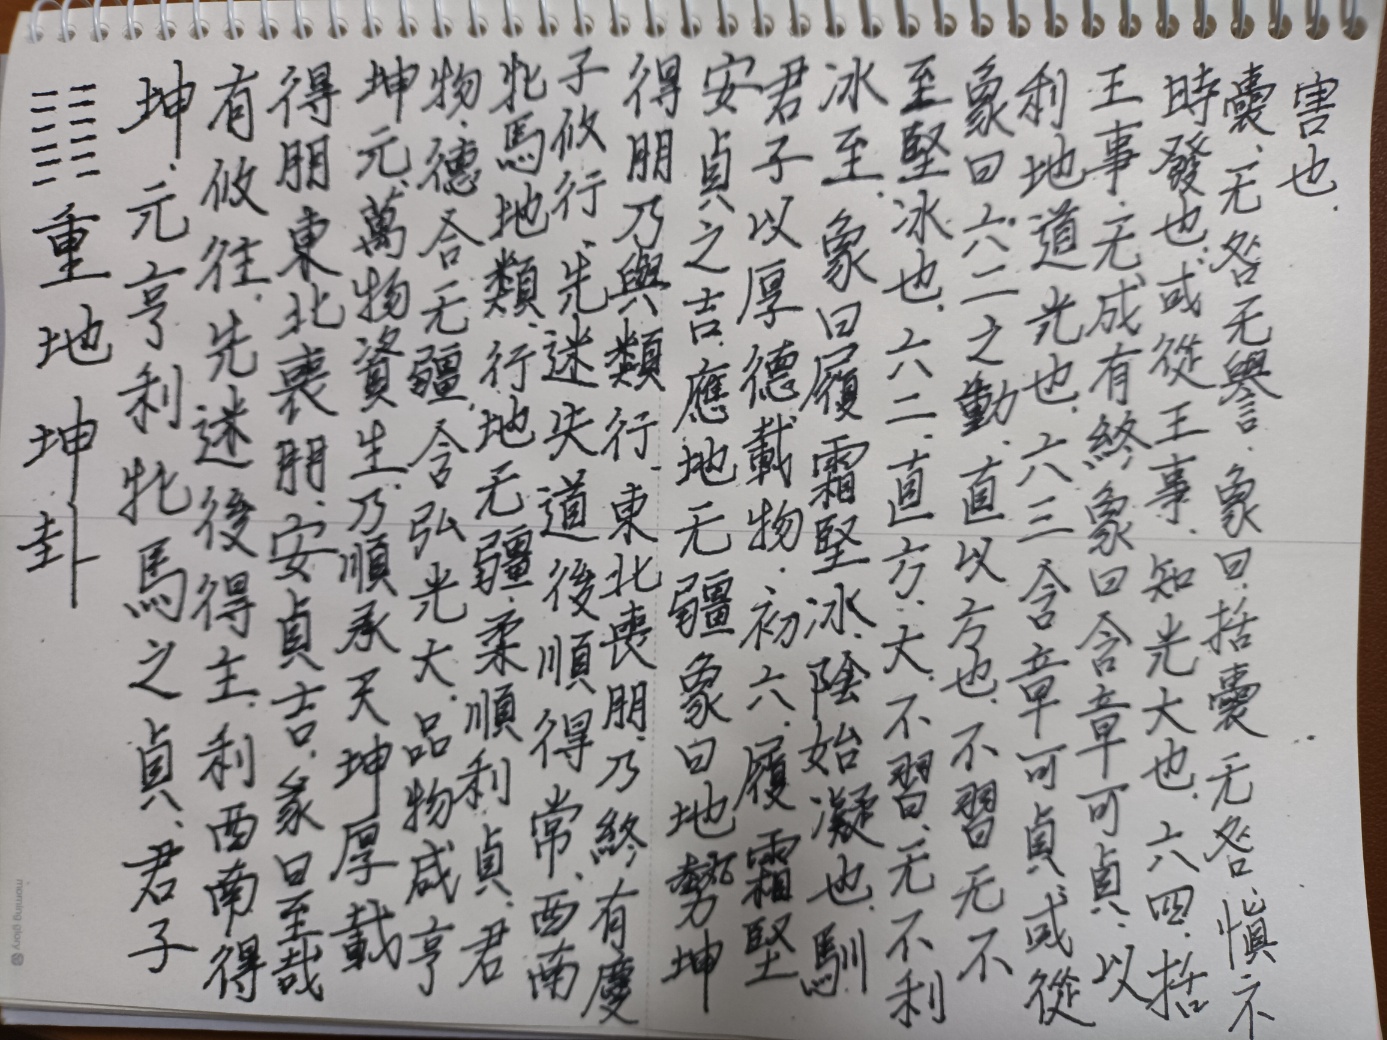 ䷁重地坤卦
坤.元亨利牝馬之貞.君子
有攸往.先迷後得主.利西南得
得朋東北喪朋.安貞吉.彖曰至哉
坤元.萬物資生.乃順承天坤厚載
物.德合无疆.含弘光大.品物咸亨
牝馬地類.行地无疆.柔順利貞.君
子攸行.先迷失道後順得常.西南
得朋乃與類行.東北喪朋.乃終有慶
安貞之吉.應地无疆象曰地勢坤
君子以厚德載物.初六.履霜堅
冰至.象曰履霜堅冰.陰始凝也.馴
至堅冰也.六二.直方.大.不習.无不利
象曰六二之動.直以方也.不習无不
利地道光也.六三含章可貞.或從
王事.无成有終.象曰含章可貞.以
時發也.或從王事.知光大也.六四.括
囊.无咎无譽.象曰.括囊无咎.愼不
害也.
morning glory